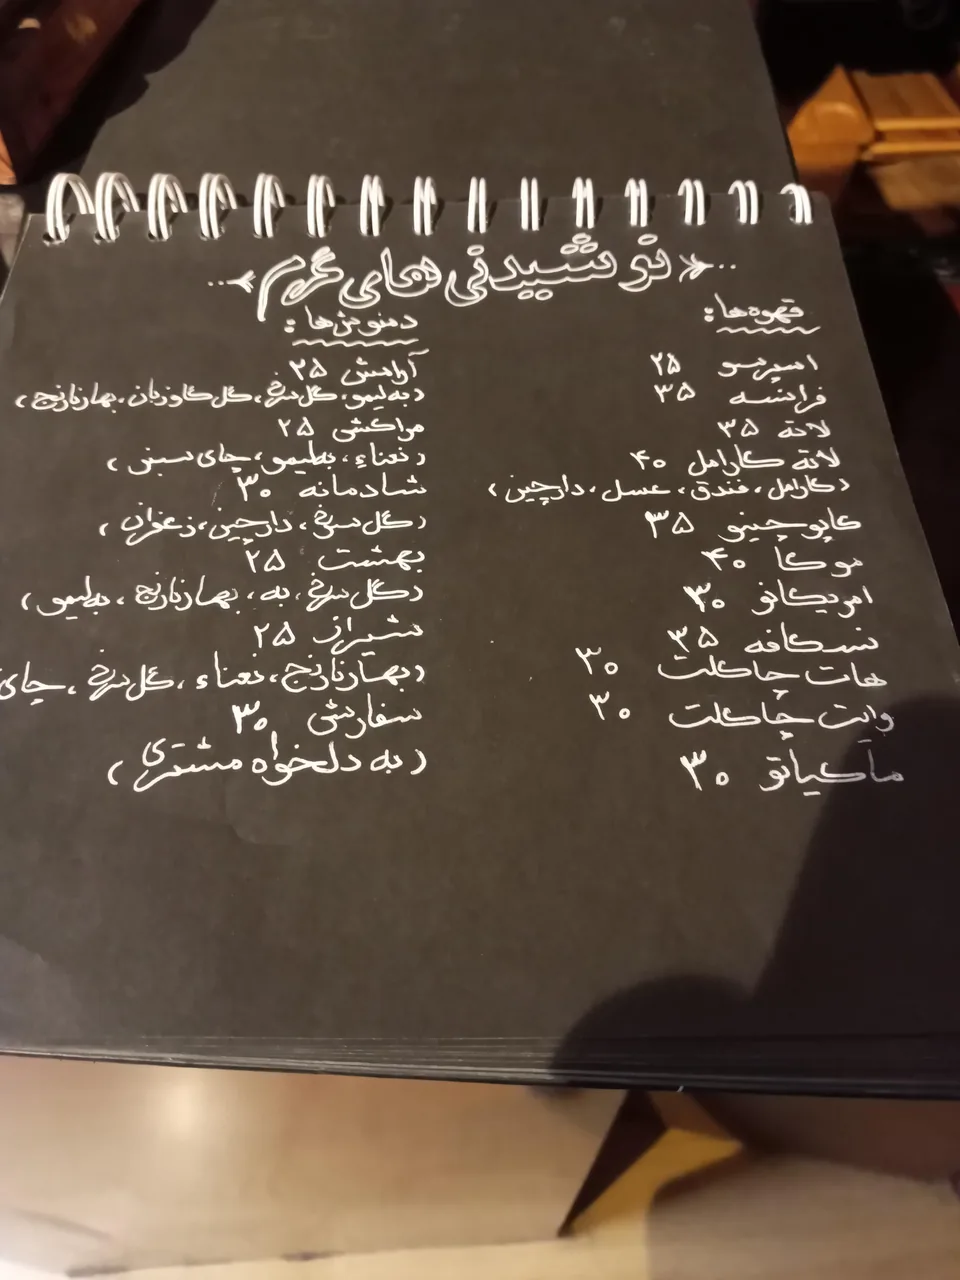 نوشیدنی های گرم
قهوه‌ها:
اسپرسو ۲۵
فرانسه ۳۵
لاته ۳۵
لاته کارامل ۴۰
(کارامل، فندق، عسل، دارچین)
کاپوچینو ۳۵
موکا ۴۰
امریکانو ۳۰
نسکافه ۳۵
هات چاکلت ۳۰
وایت چاکلت ۳۰
ماکیاتو ۳۰
دمنوش‌ها:
آرامش ۲۵
(به لیمو، گل سرخ، گل گاوزبان، بهارنارنج)
مراکشی ۲۵
(نعناء، به‌لیمو، چای سبز)
شادمانه ۳۰
(گل سرخ، دارچین، زعفران)
بهشت ۲۵
(گل سرخ، به، بهارنارنج، به‌لیمو)
شیراز ۲۵
(بهارنارنج، نعناء، گل سرخ، چای
سفارشی ۳۰
(به دلخواه مشتری)